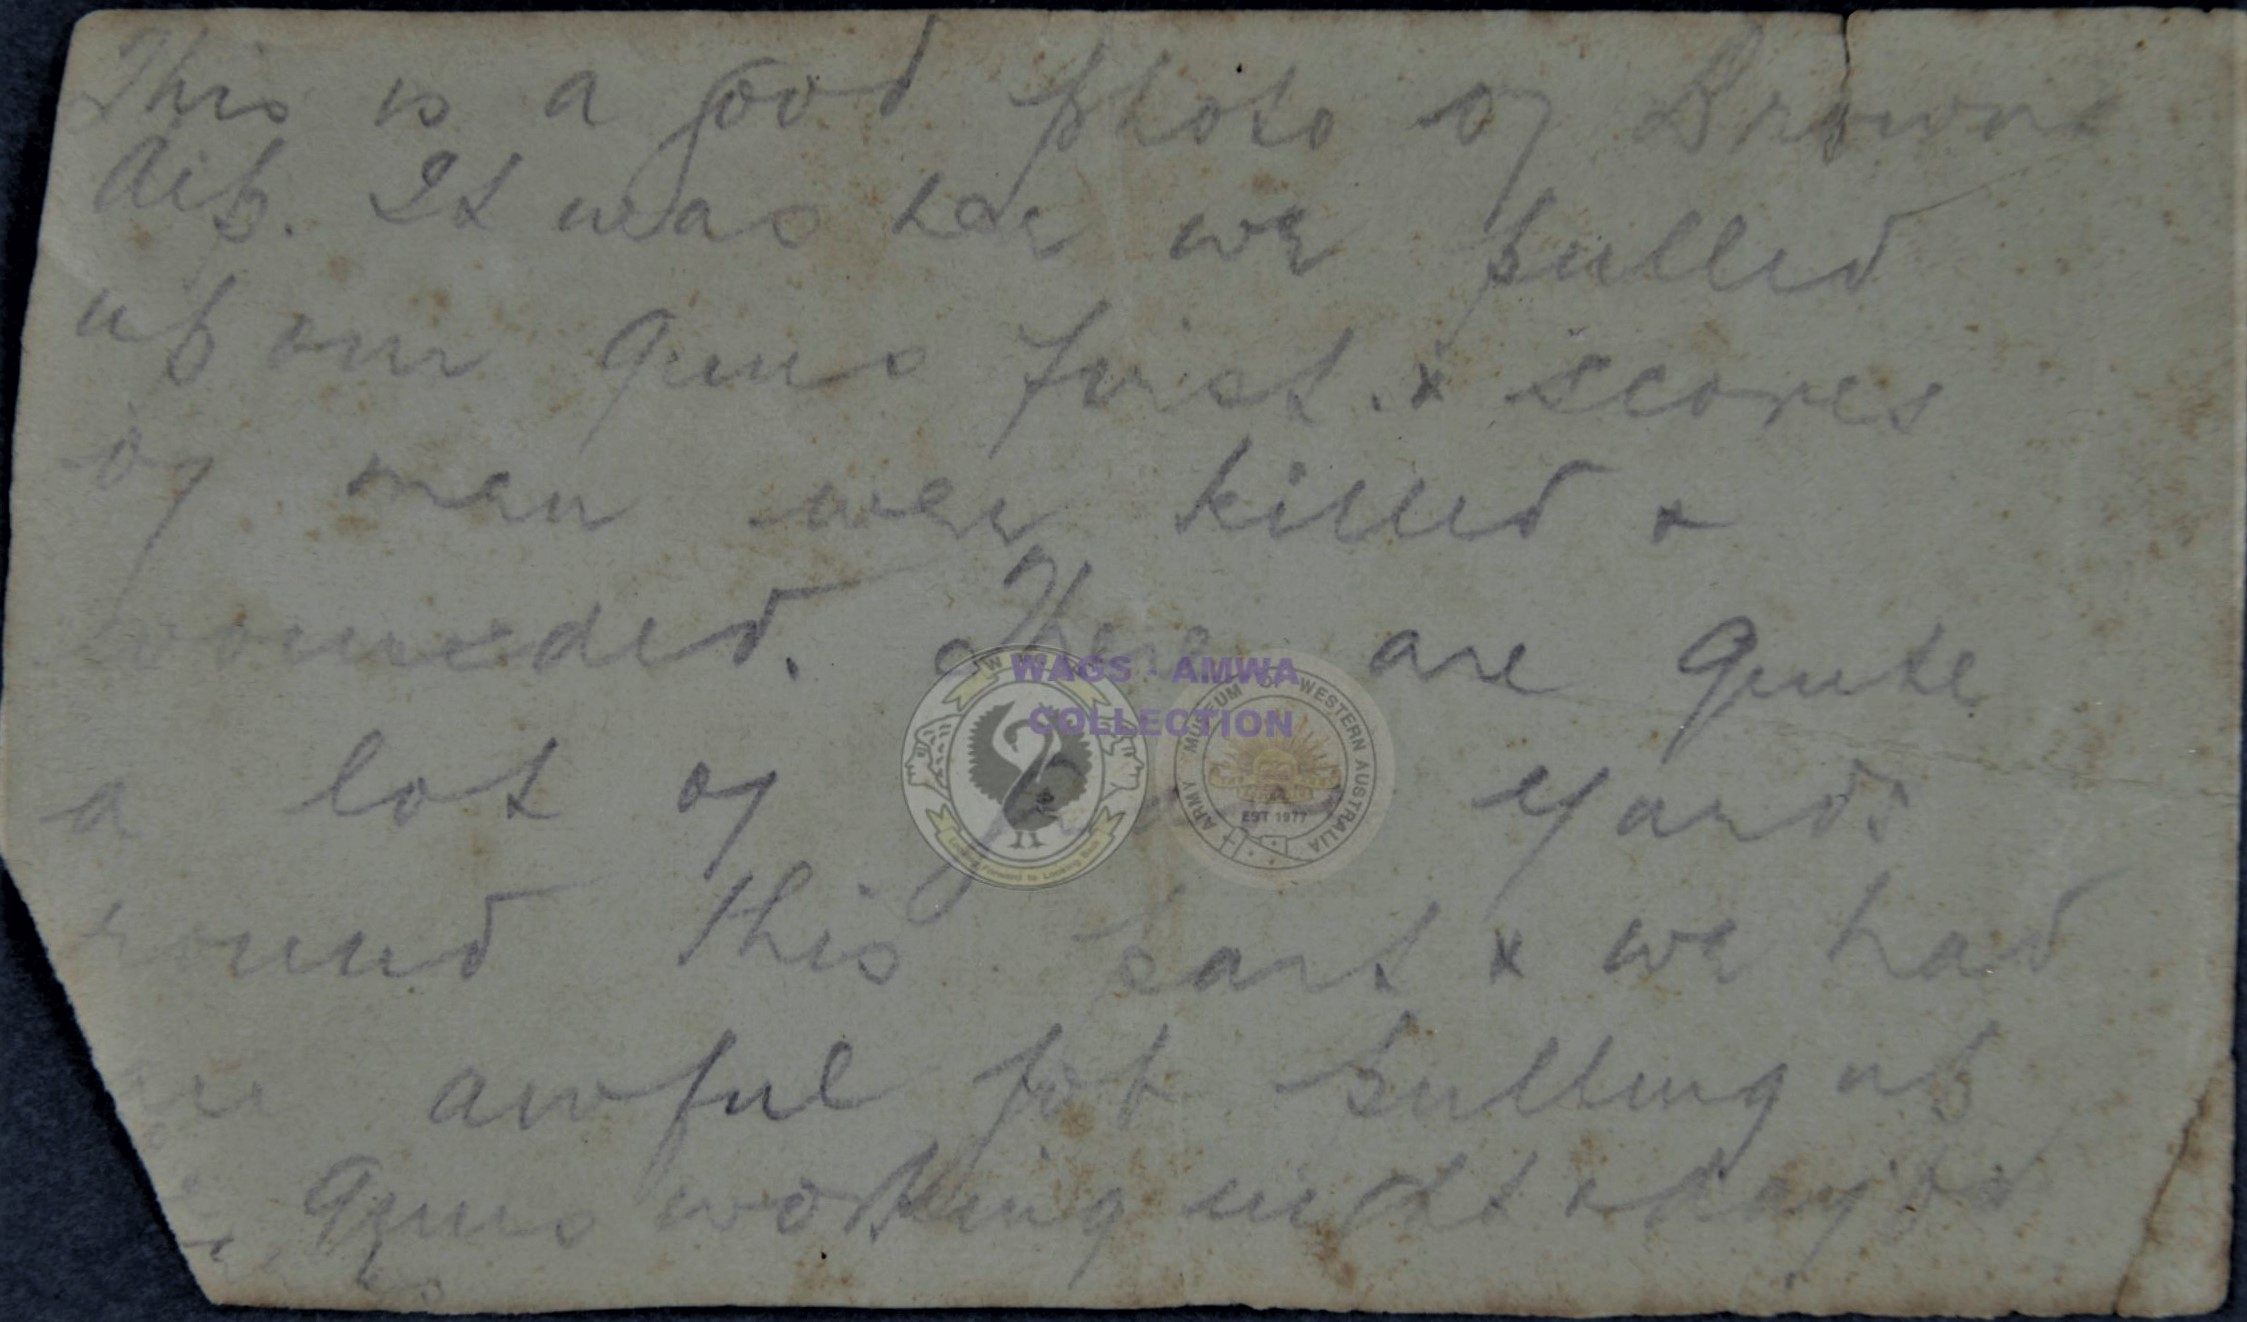 This is a good photo of Browns
dip. It was here we pulled
up our guns first. & scores
of men were killed &
wounded. There are quite
a lot of yards
round this part & we had
an awful job pulling up
guns working night & day
WAGS - AMWA
COLLECTION
ARMY MUSEUM OF WESTERN AUSTRALIA
EST 1977